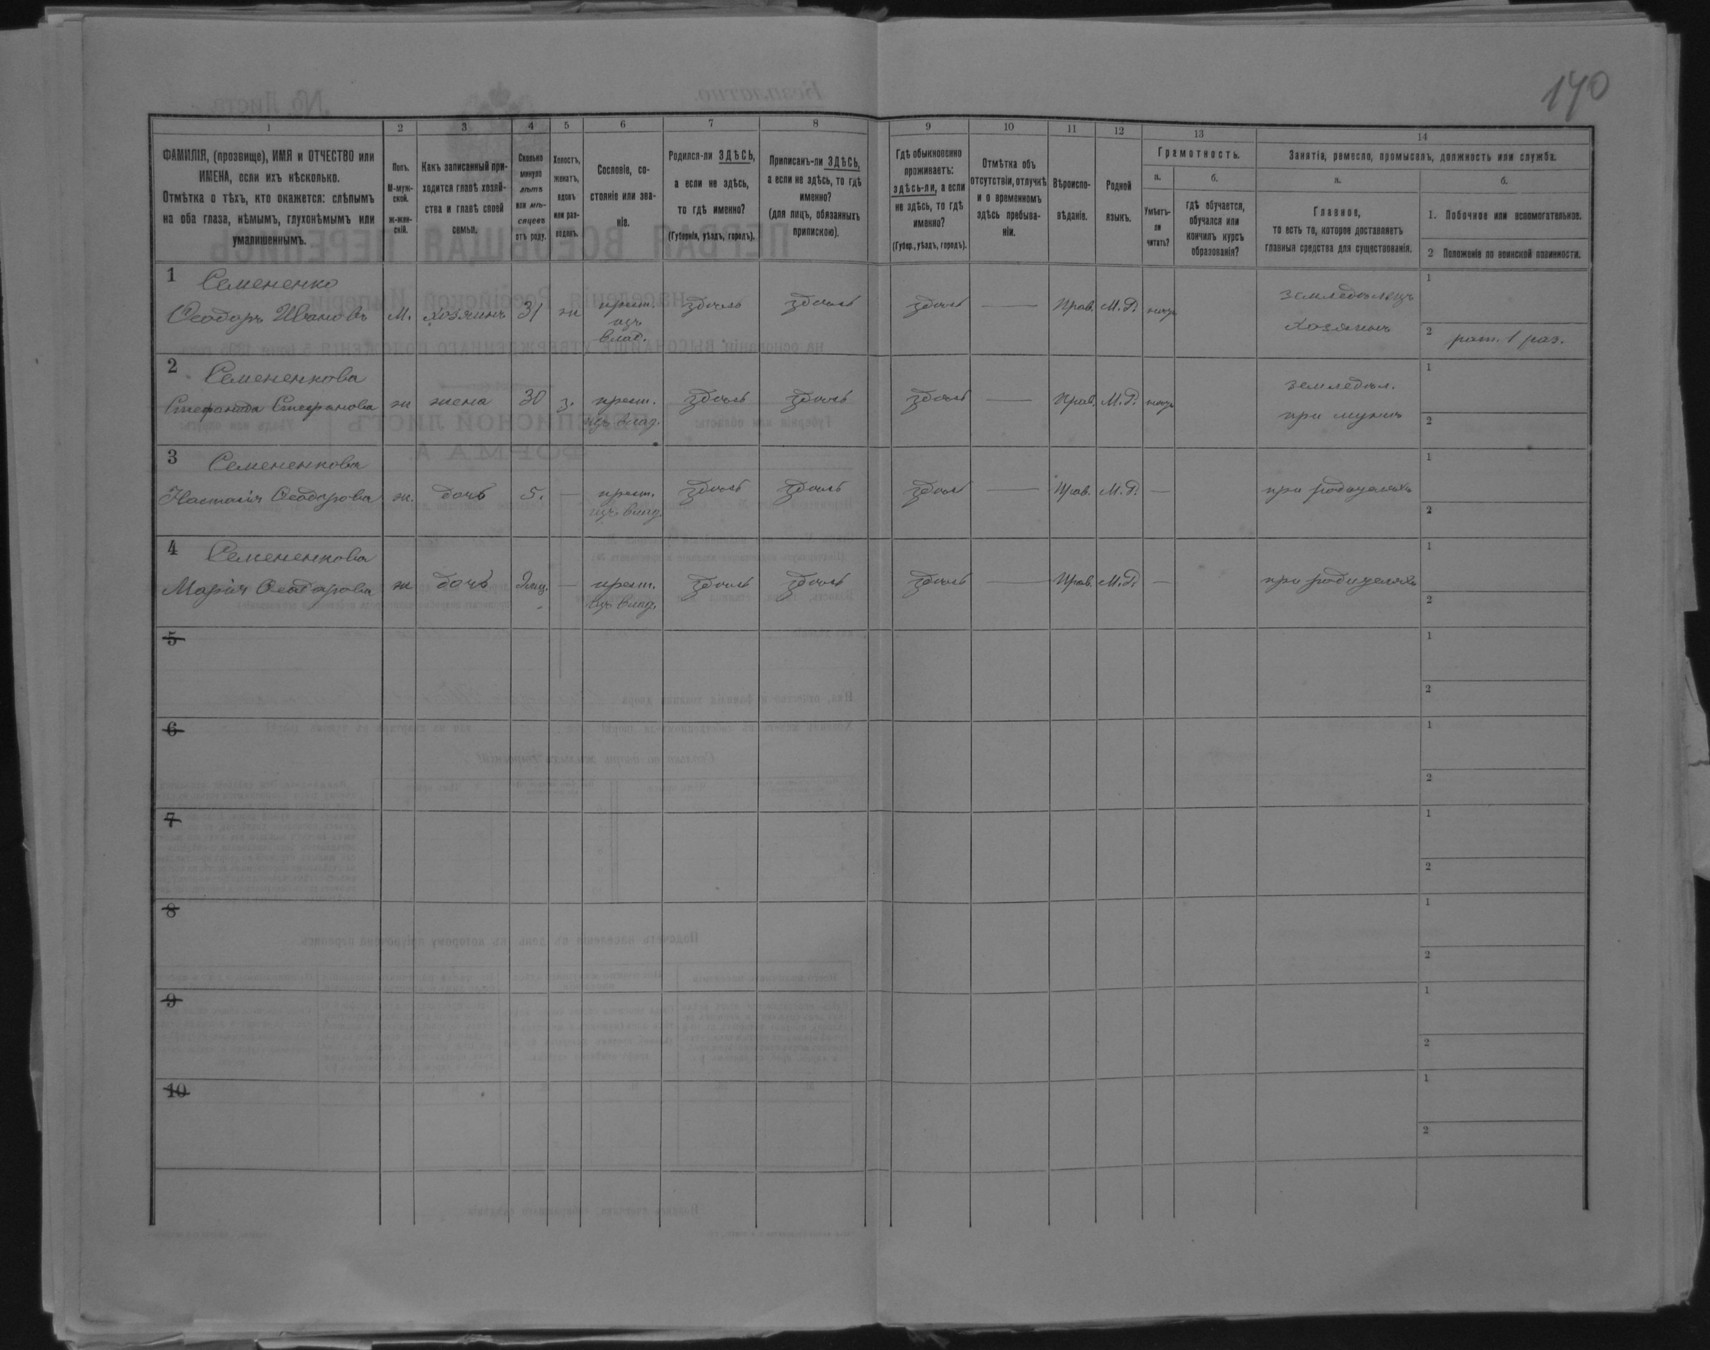 170
1 2 3 4 5 6 7 8 9 10 11 12 13 14
ФАМИЛІЯ, (прозвище), ИМЯ и ОТЧЕСТВО или
ИМЕНА, если ихъ нѣсколько.
Отмѣтка о тѣхъ, кто окажется: слѣпымъ
на оба глаза, нѣмымъ, глухонѣмымъ или
умалишеннымъ.
Полъ.
М-муж-
ской.
ж-жен-
скій.
Какъ записанный при-
ходится главѣ хозяй-
ства и главѣ своей
семьи.
Сколько
минуло
лѣтъ
или мѣ-
сяцевъ
отъ роду.
Холостъ,
женатъ,
вдовъ
или раз-
веденъ.
Сословіе, со-
стояніе или зва-
ніе.
Родился-ли ЗДѢСЬ,
а если не здѣсь,
то гдѣ именно?
(Губернія, уѣздъ, городъ).
Приписанъ-ли ЗДѢСЬ,
а если не здѣсь, то гдѣ
именно?
(для лицъ, обязанныхъ
припискою).
Гдѣ обыкновенно
проживаетъ:
здѣсь-ли, а если
не здѣсь, то гдѣ
именно?
(Губер., уѣздъ, городъ).
Отмѣтка объ
отсутствіи, отлучкѣ
и о временномъ
здѣсь пребыва-
ніи.
Вѣроиспо-
вѣданіе.
Родной
языкъ.
Грамотность.
а.
Умѣетъ-
ли
читать?
б.
гдѣ обучается,
обучался или
кончилъ курсъ
образованія?
Занятіе, ремесло, промыселъ, должность или служба.
а.
Главное,
то есть то, которое доставляетъ
главныя средства для существованія.
б.
1. Побочное или вспомогательное.
2 Положеніе по воинской повинности.
1 Семененко
Ѳеодоръ Ивановъ М. хозяинъ 31 ж крест. здѣсь здѣсь здѣсь — Прав. М.Р. землед 1
изъ влад. хозяинъ 2 рат. 1 раз.
2 Семененкова
Стефанида Стефанова ж жена 30 з. крест. здѣсь здѣсь здѣсь — Прав. М.Р. земледѣл. 1
изъ влад. при мужѣ 2
3 Семененкова
Наталія Ѳеодорова ж. дочь 5. — крест. здѣсь здѣсь здѣсь — Прав. М.Р. — при родителяхъ 1
изъ влад. 2
4 Семененкова
Марія Ѳеодорова ж дочь — крест. здѣсь здѣсь здѣсь — Прав. М.Р. — при родителяхъ 1
изъ влад. 2
5 1
2
6 1
2
7 1
2
8 1
2
9 1
2
10 1
2